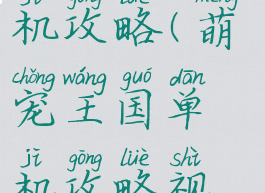 jī gōng lüè méng
机攻略(萌
chǒng wáng guó dān
宠王国单
jī gōng lüè shì
机攻略视